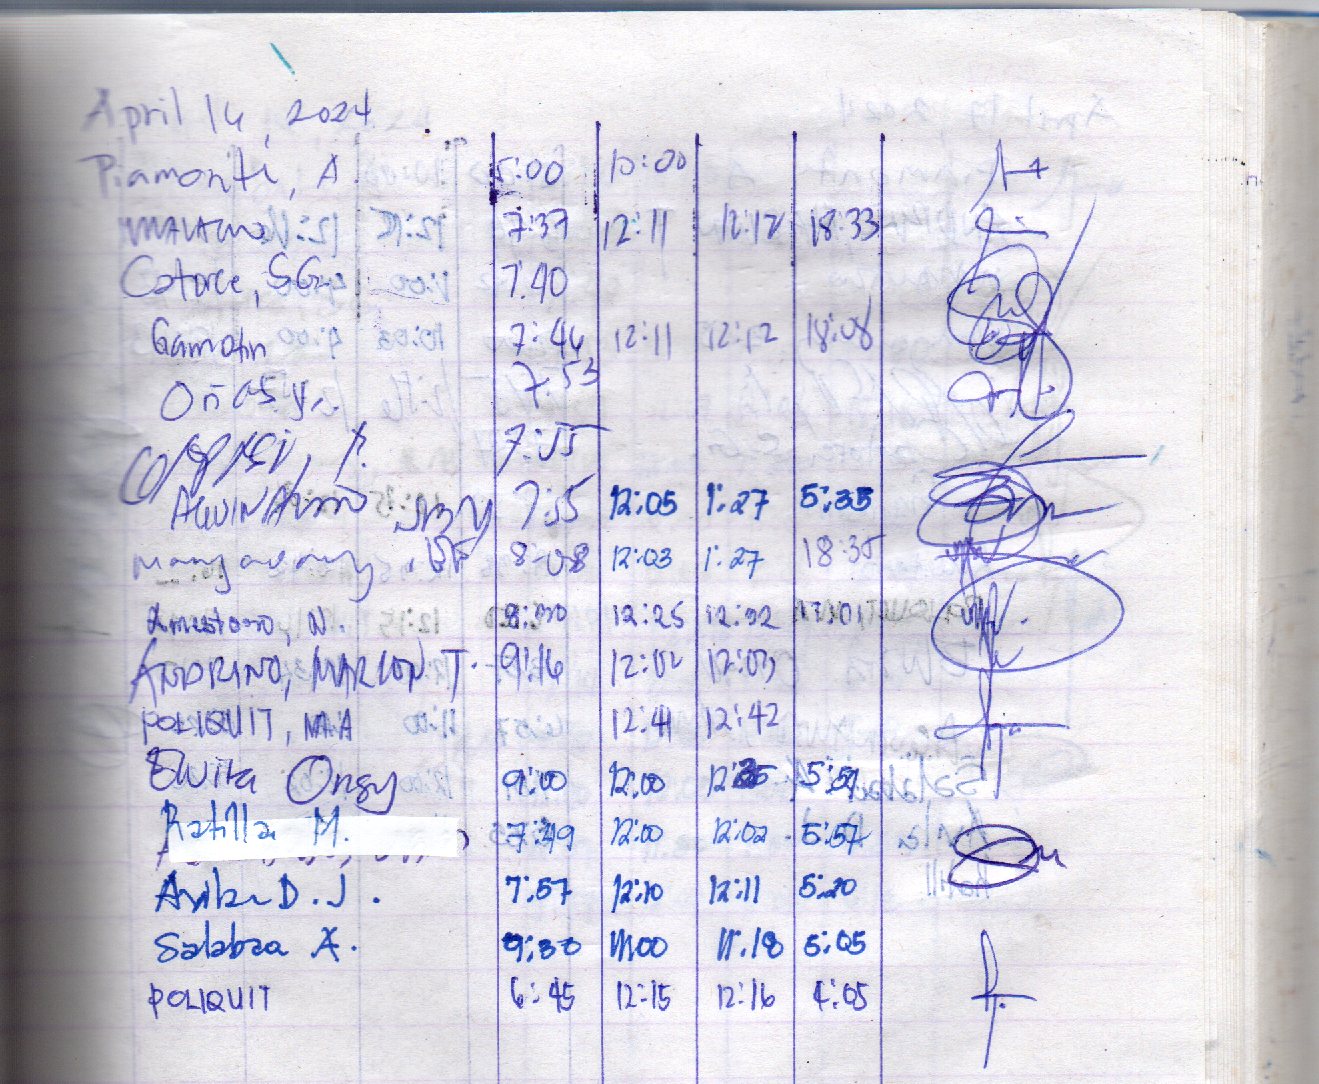 April 16, 2024
Piamonti, A. 5:00 10:00
7:37 12:11 12:12 18:33
Catorce, SG 7:40
Gamotin 7:46 12:11 12:12 18:08
Oñasy, 7:53
7:55
Alvin 7:55 12:05 1:27 5:33
8:08 12:03 1:27 18:35
N. 8:30 12:25 12:32 17:01
ANDRINO, MARLON T. 9:16 12:02 12:03
POLIQUIT, MA 12:41 12:42
Elvira Ongy 9:00 12:00 12:35 5:59
Ratilla M. 7:49 12:00 12:02 5:57
Avila D.J. 7:57 12:10 12:11 5:20
Salabao A. 9:30 11:00 11:18 5:05
POLIQUIT 6:45 12:15 12:16 4:05